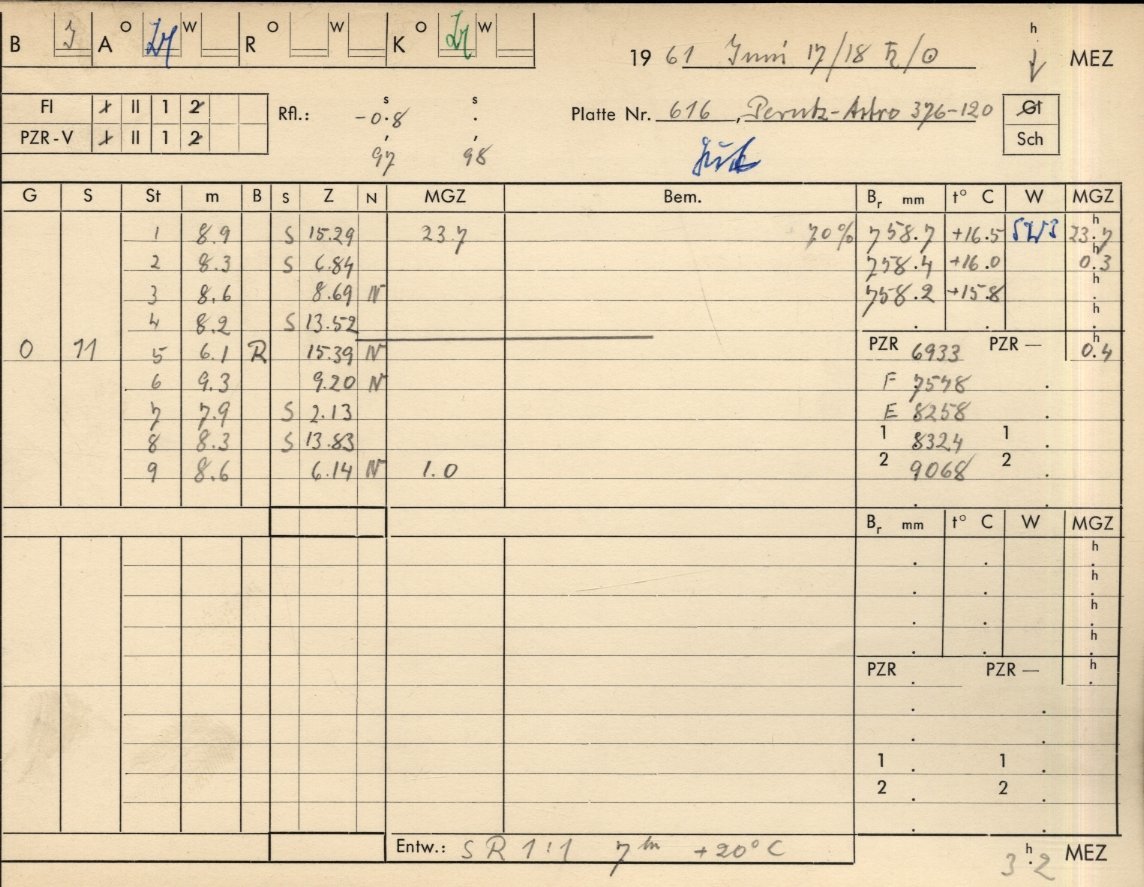 B A O W R O W K O W
19 61 Juni 17/18 ♄/☉ h MEZ
FI I II 1 2 Rfl.: -0.8 s s Platte Nr. 616, Perutz-Astro 376-120 Gt
PZR-V I II 1 2 97 98 Sch
G S St m B S Z N MGZ Bem. Br mm t° C W MGZ
1 8.9 S 15.29 23.7 70% 758.7 +16.5 SW3 23.7 h
2 8.3 S 6.84 758.4 +16.0 0.3 h
3 8.6 8.69 N 758.2 +15.8 h
4 8.2 S 13.52 h
0 11 5 6.1 R 15.39 N PZR 6933 PZR — 0.4 h
6 9.3 9.20 N F 7578
7 7.9 S 2.13 E 8258
8 8.3 S 13.83 1 8324 1
9 8.6 6.14 N 1.0 2 9068 2
Br mm t° C W MGZ
h
h
h
h
PZR PZR — h
1 1
2 2
Entw.: SR 1:1 7m +20° C 3h.2 MEZ